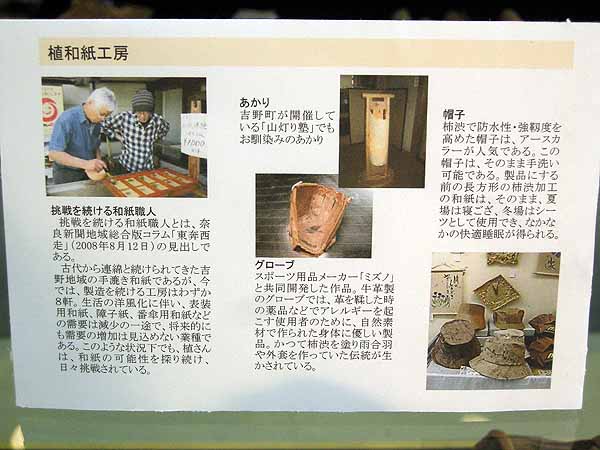 植和紙工房
挑戦を続ける和紙職人
挑戦を続ける和紙職人とは、奈
良新聞地域総合版コラム「東奔西
走」(2008年8月12日)の見出しで
ある。
古代から連綿と続けられてきた吉
野地域の手漉き和紙であるが、今
では、製造を続ける工房はわずか
8軒。生活の洋風化に伴い、表装
用和紙、障子紙、番傘用和紙など
の需要は減少の一途で、将来的に
も需要の増加は見込めない業種で
ある。このような状況下でも、植さん
は、和紙の可能性を探り続け、
日々挑戦されている。
あかり
吉野町が開催して
いる「山灯り塾」でも
お馴染みのあかり
グローブ
スポーツ用品メーカー「ミズノ」
と共同開発した作品。牛革製
のグローブでは、革を鞣した時
の薬品などでアレルギーを起
こす使用者のために、自然素
材で作られた身体に優しい製
品。かつて柿渋を塗り雨合羽
や外套を作っていた伝統が生
かされている。
帽子
柿渋で防水性・強靱度を
高めた帽子は、アースカ
ラーが人気である。この
帽子は、そのまま手洗い
可能である。製品にする
前の長方形の柿渋加工
の和紙は、そのまま、夏
場は寝ござ、冬場はシー
ツとして使用でき、なかな
かの快適睡眠が得られる。